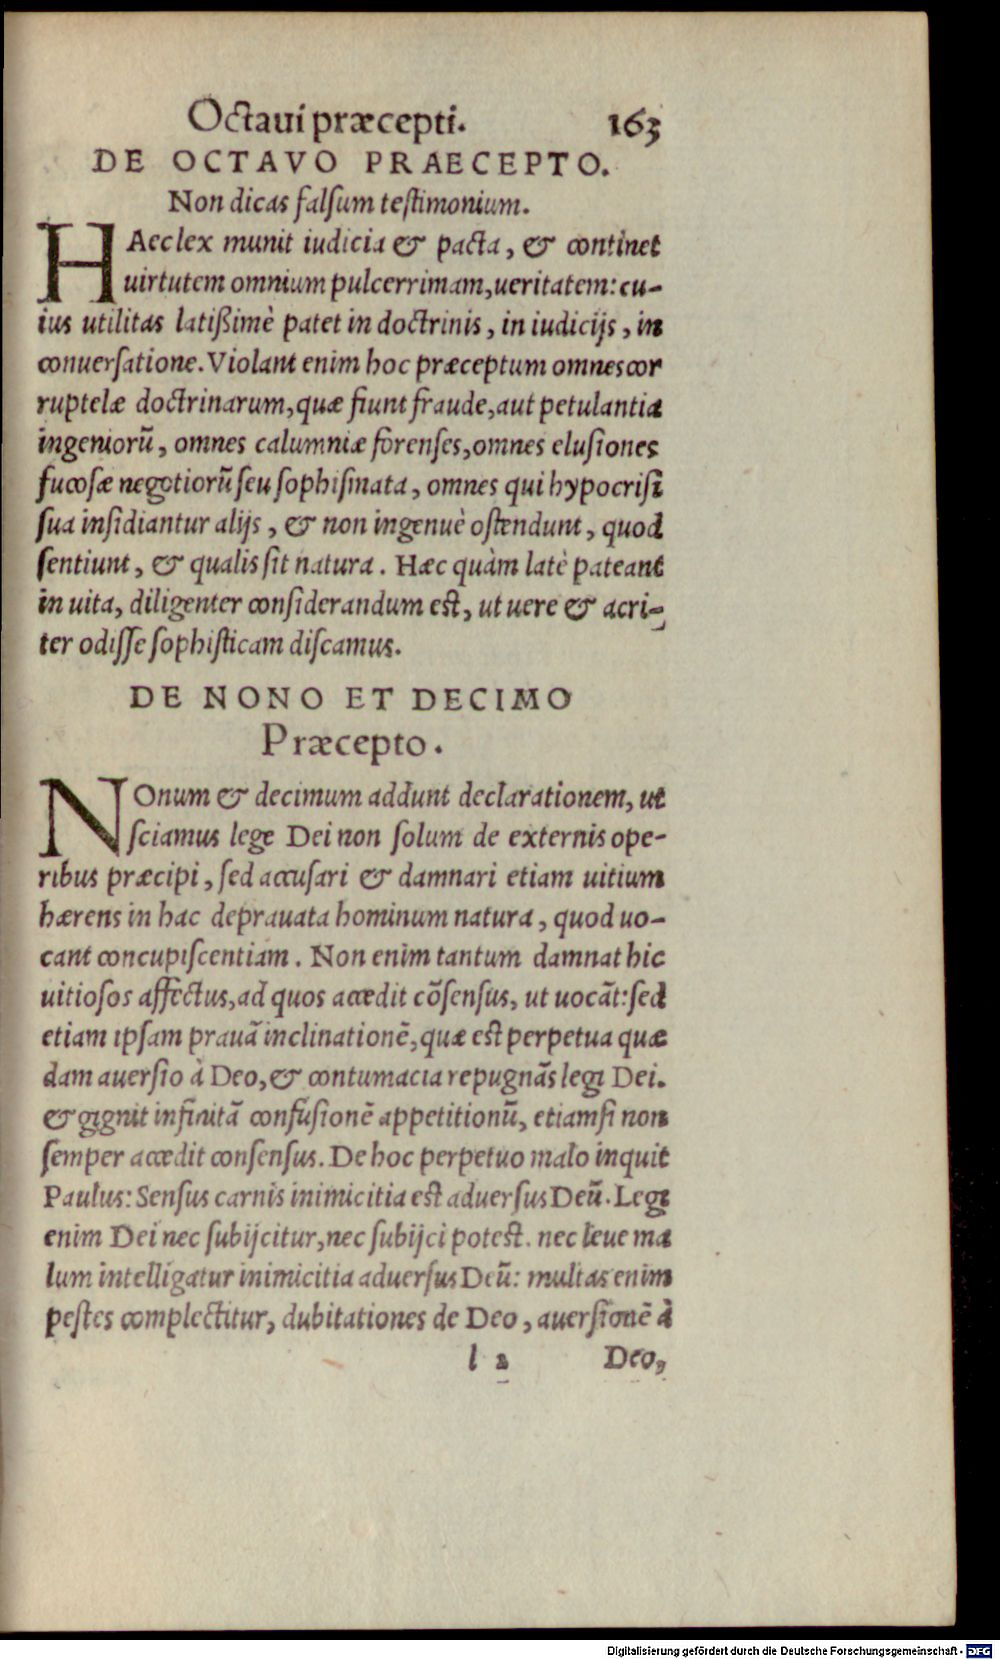 Octaui præcepti. 163
DE OCTAVO PRAECEPTO.
Non dicas falſum teſtimonium.
HAec lex munit iudicia & pacta, & continet
uirtutem omnium pulcerrimam, ueritatem: cu-
ius utilitas latißimè patet in doctrinis, in iudicijs, in
conuerſatione. Violant enim hoc præceptum omnes cor
ruptelæ doctrinarum, quæ fiunt fraude, aut petulantia
ingeniorũ, omnes calumniæ forenſes, omnes eluſiones
fucoſæ negotiorũ ſeu ſophiſmata, omnes qui hypocriſi
ſua inſidiantur alijs, & non ingenuè oſtendunt, quod
ſentiunt, & qualis ſit natura. Hæc quàm latè pateant
in uita, diligenter conſiderandum eſt, ut uere & acri-
ter odiſſe ſophiſticam diſcamus.
DE NONO ET DECIMO
Præcepto.
NOnum & decimum addunt declarationem, ut
ſciamus lege Dei non ſolum de externis ope-
ribus præcipi, ſed accuſari & damnari etiam uitium
hærens in hac deprauata hominum natura, quod uo-
cant concupiſcentiam. Non enim tantum damnat hic
uitioſos affectus, ad quos accedit cõſenſus, ut uocãt: ſed
etiam ipſam prauã inclinationẽ, quæ eſt perpetua quæ
dam auerſio à Deo, & contumacia repugnãs legi Dei.
& gignit infinitã confuſionẽ appetitionũ, etiamſi non
ſemper accedit conſenſus. De hoc perpetuo malo inquit
Paulus: Senſus carnis inimicitia eſt aduerſus Deũ. Legi
enim Dei nec ſubijcitur, nec ſubijci poteſt. nec leue ma
lum intelligatur inimicitia aduerſus Deũ: multas enim
peſtes complectitur, dubitationes de Deo, auerſionẽ à
l 2 Deo,
Digitalisierung gefördert durch die Deutsche Forschungsgemeinschaft - DFG